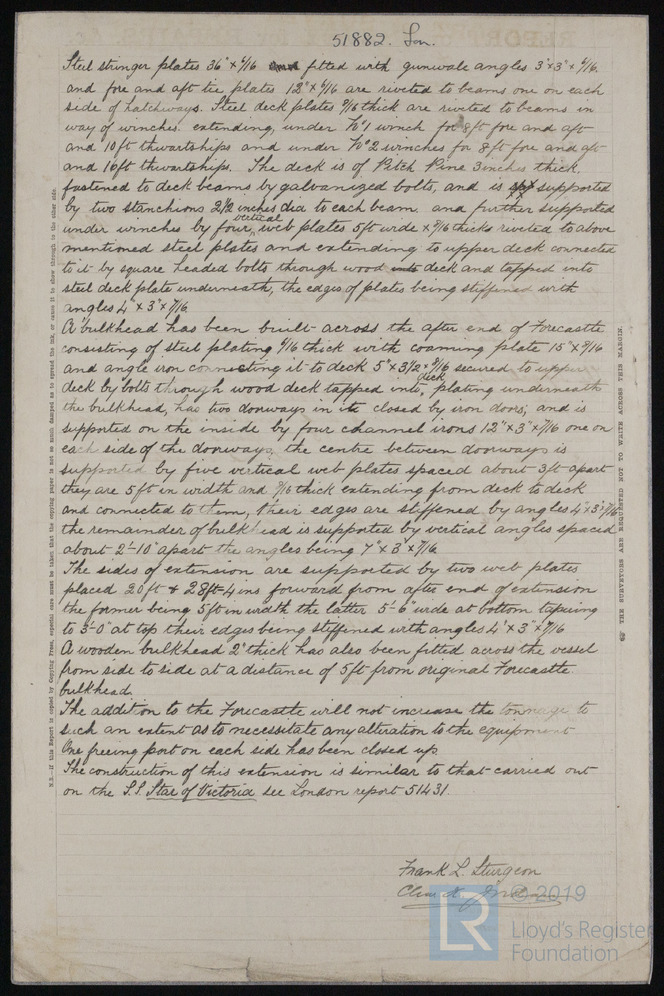 51882. Lon.
Steel stringer plates 36" x 6/16 fitted with gunwale angles 3" x 3" x 6/16.
and fore and aft tie plates 12" x 6/16 are riveted to beams one on each
side of hatchways. Steel deck plates 7/16 thick are riveted to beams in
way of winches. extending, under No 1 winch for 8ft fore and aft
and 10ft thwartships and under No 2 winches for 8ft fore and aft
and 16ft thwartships. The deck is of Pitch Pine 3 inches thick.
fastened to deck beams by galvanized bolts, and is supported
by two stanchions 2 1/2 inches dia to each beam. and further supported
under winches by four vertical web plates 5ft wide x 7/16 thick riveted to above
mentioned steel plates and extending to upper deck connected
to it by square headed bolts through wood deck and tapped into
steel deck plate underneath, the edges of plates being stiffened with
angles 4" x 3" x 7/16
A bulkhead has been built across the after end of Forecastle
consisting of steel plating 6/16 thick with coaming plate 15" x 7/16
and angle iron connecting it to deck 5" x 3 1/2 x 9/16 secured to upper
deck by bolts through wood deck tapped into deck plating underneath
the bulkhead, has two doorways in it closed by iron doors, and is
supported on the inside by four channel irons 12" x 3" x 7/16 one on
each side of the doorways, the centre between doorways is
supported by five vertical web plates spaced about 3ft apart
they are 5ft in width and 7/16 thick extending from deck to deck
and connected to them, their edges are stiffened by angles 4" x 3" x 7/16
the remainder of bulkhead is supported by vertical angles spaced
about 2'-10" apart the angles being 7" x 3" x 7/16
The sides of extension are supported by two web plates
placed 20ft & 28ft-4ins forward from after end of extension
the former being 5ft in width the latter 5'-6" wide at bottom tapering
to 3'-0" at top their edges being stiffened with angles 4" x 3" x 7/16
A wooden bulkhead 2" thick has also been fitted across the vessel
from side to side at a distance of 5ft from original Forecastle
bulkhead.
The addition to the Forecastle will not increase the tonnage to
such an extent as to necessitate any alteration to the equipment
One freeing port on each side has been closed up
The construction of this extension is similar to that carried out
on the S.S. Star of Victoria see London report 51431.
Frank L. Sturgeon
© 2019
LR
Lloyd's Register
Foundation
N.B.—If this Report is copied by Copying Press, especial care must be taken that the copying paper is not so much damped as to spread the ink, or cause it to show through to the other side.
THE SURVEYORS ARE REQUESTED NOT TO WRITE ACROSS THIS MARGIN.